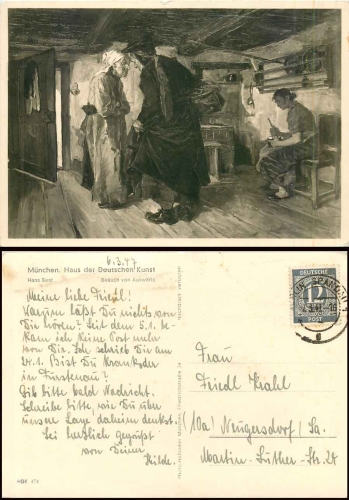 6.3.47
München, Haus der Deutschen Kunst
Hans Best
Besuch von Auswärts
Meine liebe Friedl!
Warum läßt Du nichts von
Dir hören? Seit dem 5.1. be-
kam ich keine Post mehr
von Dir. Ich schrieb Dir am
24.1. Bist Du krank oder
in Fürstenau?
Gib bitte bald Nachricht.
Schreibe bitte, wie Du über
unsere Lage daheim denkst.
Sei herzlich gegrüßt
von Deiner
Hilde.
HDK 474
DEUTSCHE
12
POST
Frau
Friedl Krahl
(10a) Neugersdorf/Sa.
Martin-Luther-Str. 24